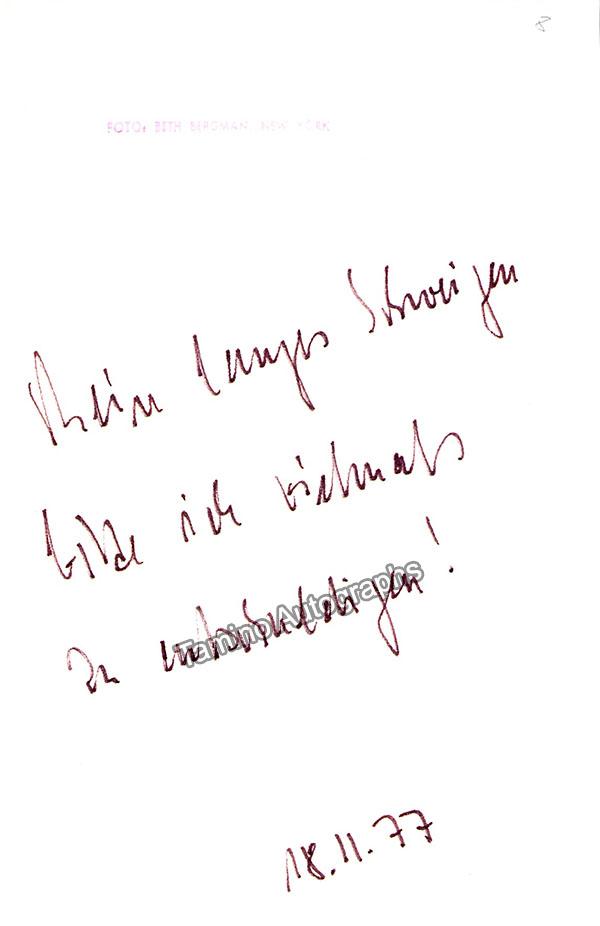 8
FOTO: BETH BERGMAN, NEW YORK
Mein langes Schweigen
bitte ich vielmals
zu entschuldigen!
Tamino Autographs
18.11.77